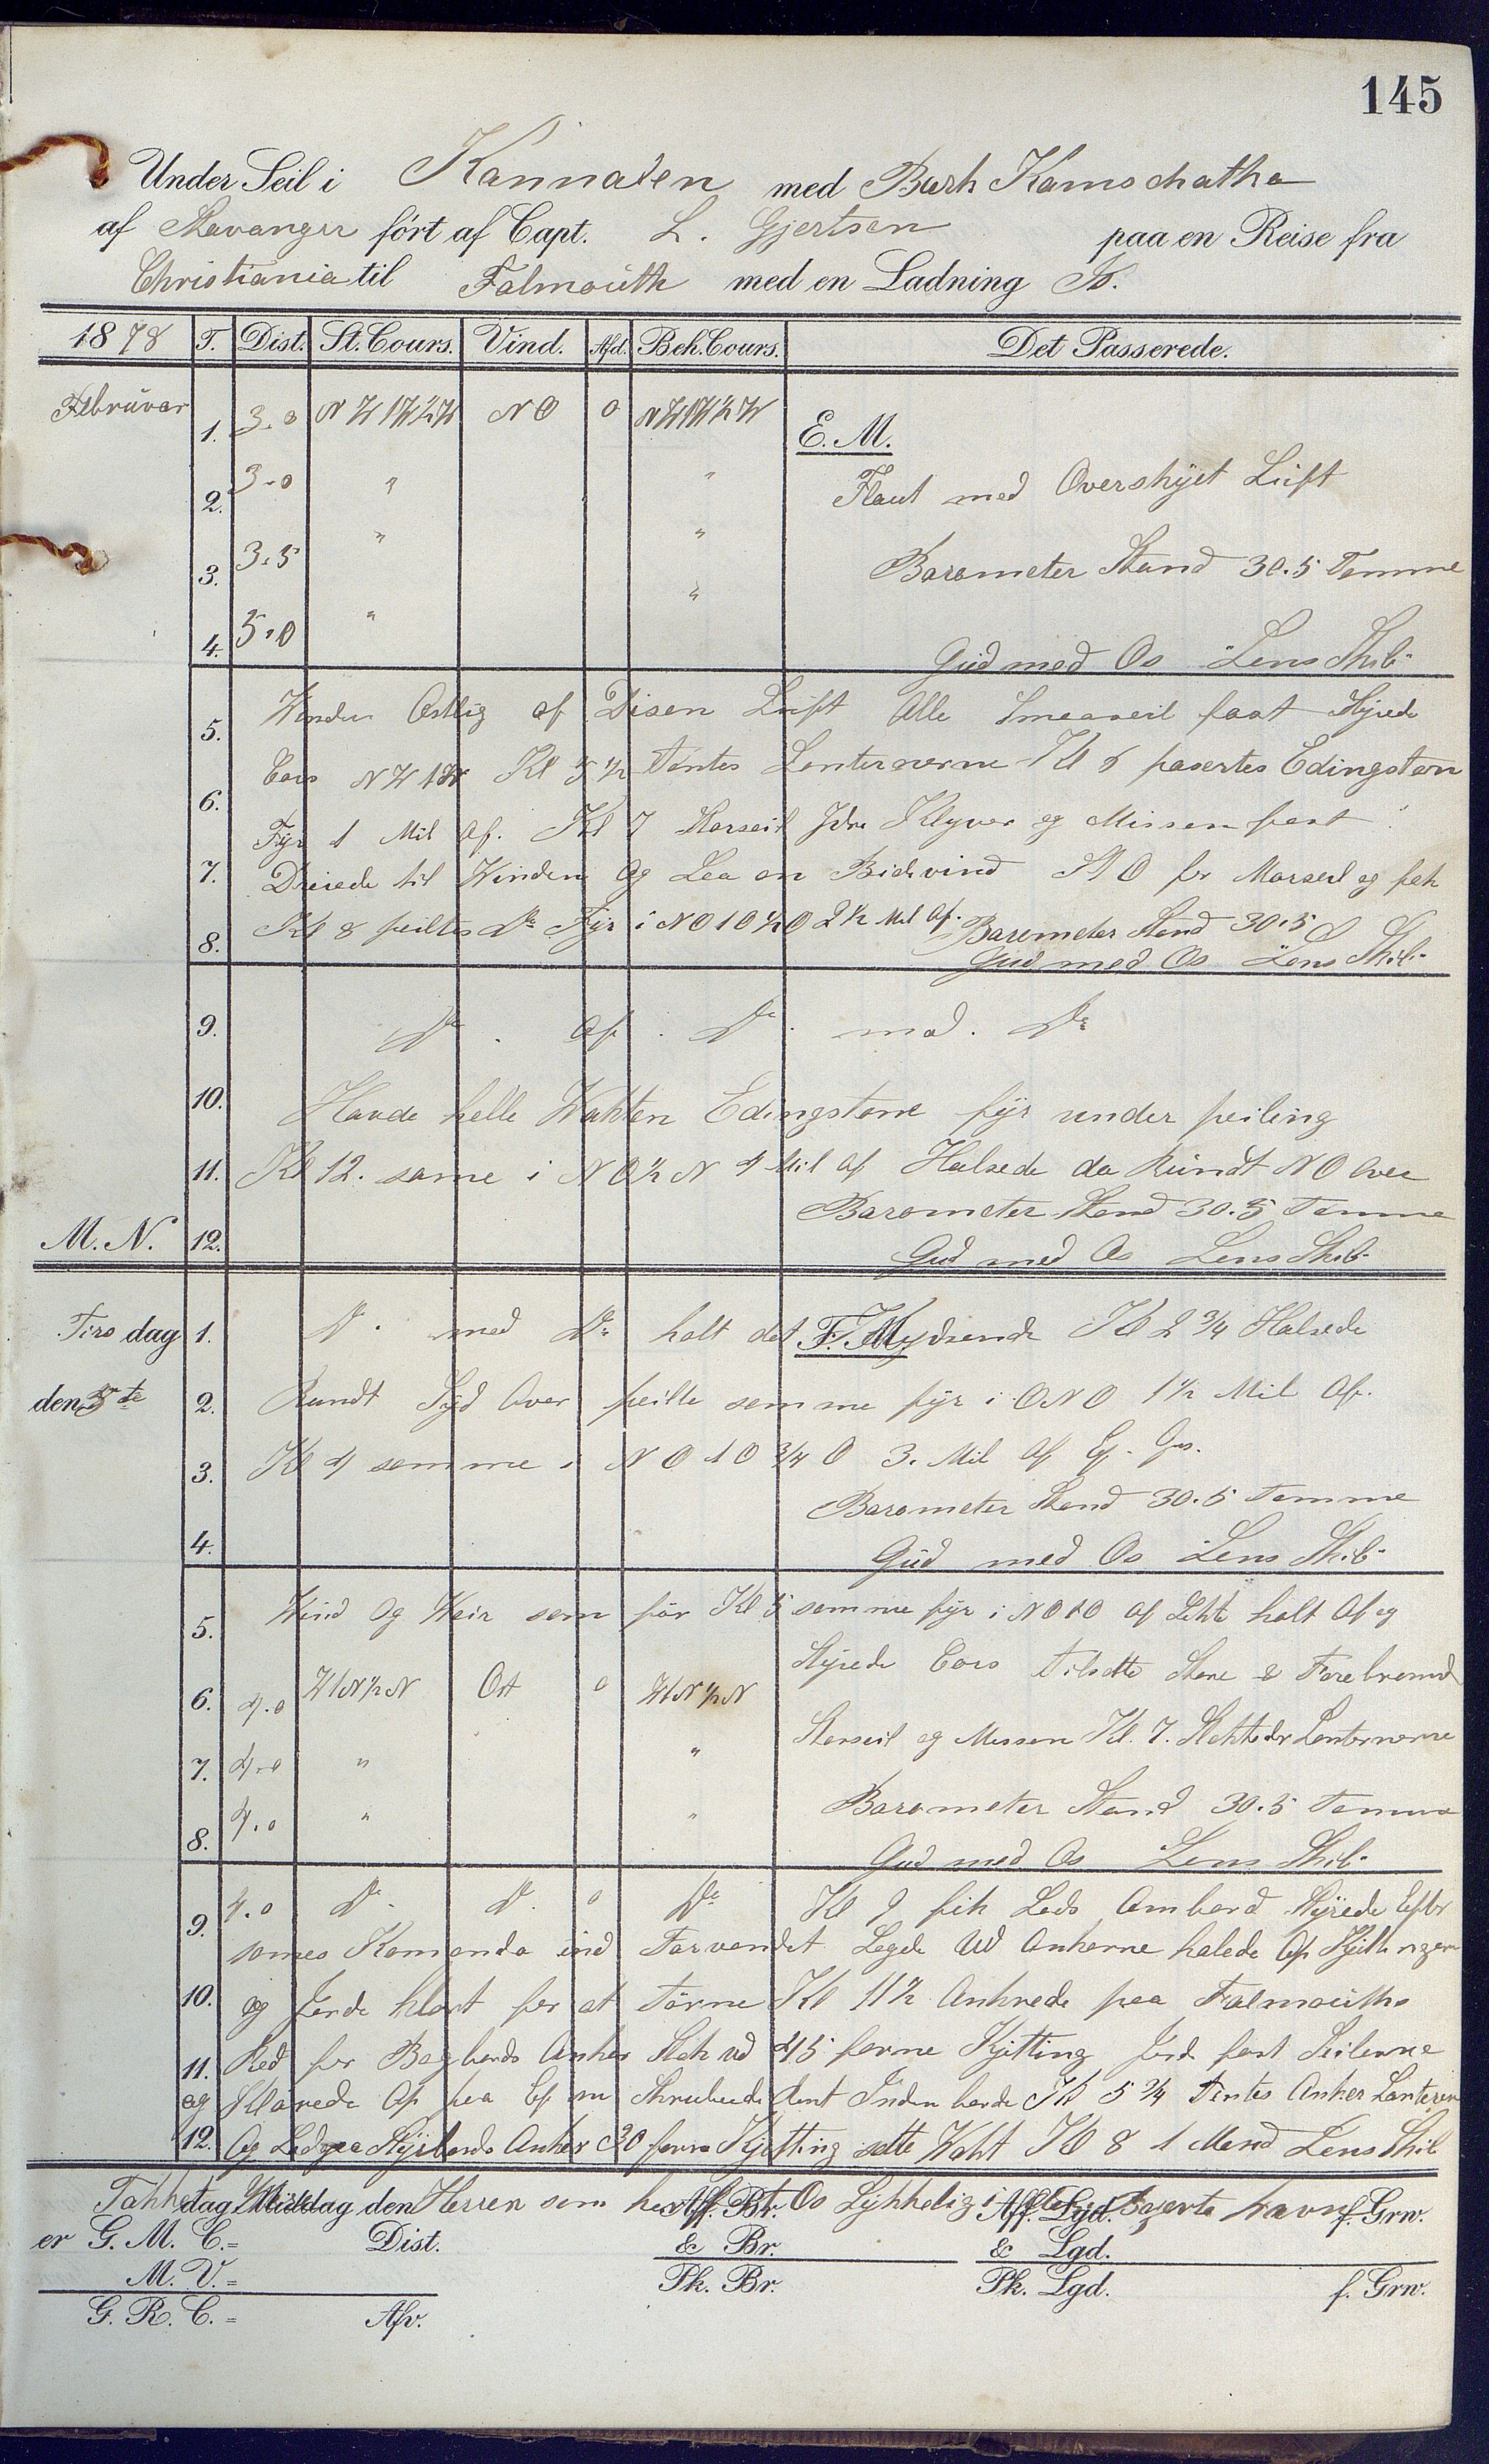 145
Under Seil i Kannalen med Bark Kamschatka
af Stavanger ført af Capt. L. Gjertsen paa en Reise fra
Christiania til Falmouth med en Ladning Is.
1878 T. Dist. St. Cours. Vind. Afd. Beh. Cours. Det Passerede.
Februar 1. 3.0 NW1W½W NO 0 NW1W½W E. M.
2. 3.0 " " Flaut med Overskyet Luft
3. 3.5 " " Barometer Stand 30.5 Tomme
4. 5.0 " " Gud med Os Lens Skib
5. Vinden Ostlig af Disen Luft Alle Smaaseil fast Styrede
6. Cors NW1W Kl 5½ Tentes Lanternerne Kl 6 pasertes Edingston
Fyr 1 Mil Af. Kl 7 Storseil Jdre Klyver og Missen fast
7. Dreiede til Vinden og Laa on Bidevind StO for Marseil og fok
8. Kl 8 peiltes Do Fyr i NO1O½O 2½ Mil Af. Barometer Stand 30.5
Gud med Os Lens Skib
9. Do. Af. Do. med. Do
10. Havde helle Vakten Edingstone fyr under peiling
11. Kl 12. same i NO½N 4 Mil af Halsede da Rundt NO Over
Barometer Stand 30.5 Tomme
M. N. 12. Gud med Os Lens Skib
Tirsdag 1. Do. med Do. holt det F. M. Kl 2¾ Halsede
den 5te 2. Rundt Syd Over peilte somme fyr i ONO 1½ Mil Af.
3. Kl 4 somme i NO1O¾O 3. Mil Af
Barometer Stand 30.5 Tomme
4. Gud med Os Lens Skib
5. Vind og Veir som før Kl 5 somme fyr i NO1O af holt Af og
Styrede Cors tilsatte Store & Forebram
6. 4.0 W1N½N Ost 0 W1N½N
Storseil og Messan Kl. 7. Lanternerne
7. 4.0 " "
Barometer Stand 30.5 Tomme
8. 4.0 " "
Gud med Os Lens Skib
9. 4.0 Do. Do. 0 Do Kl 9 fik Lods Ambord Styrede Efter
somes Komando ind Farvandet Legde Ud Ankerne halede Op
10. og Jorde klart for at Tørne Kl 11½ Ankrede paa Falmouths
11. Red for Bagbords Anker Stak ud 45 favne Kjetting Jord fast Seilerne
og Klarede Op paa Kl 5¾ Tentes Anker Lanteren
12. Og Styrbords Anker 30 favne Kjetting satte Vakt Kl 8 1 Mand Lens Skib
Takket Være Herren som har Os Lykkelig i havn
dag Middag den Aff. Br. Aff. Lgd. f. Grw.
er G. M. C. = Dist. & Br. & Lgd.
M. V. = Pk. Br. Pk. Lgd. f. Grw.
G. R. C. = Afv.